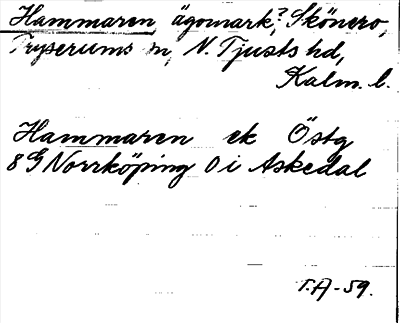 Hammaren ägomark? Skönero,
Tryserums sn, N. Tjusts hd,
Kalm. l.
Hammaren ek Östg
8G Norrköping 0 i Askedal
T.A-59.